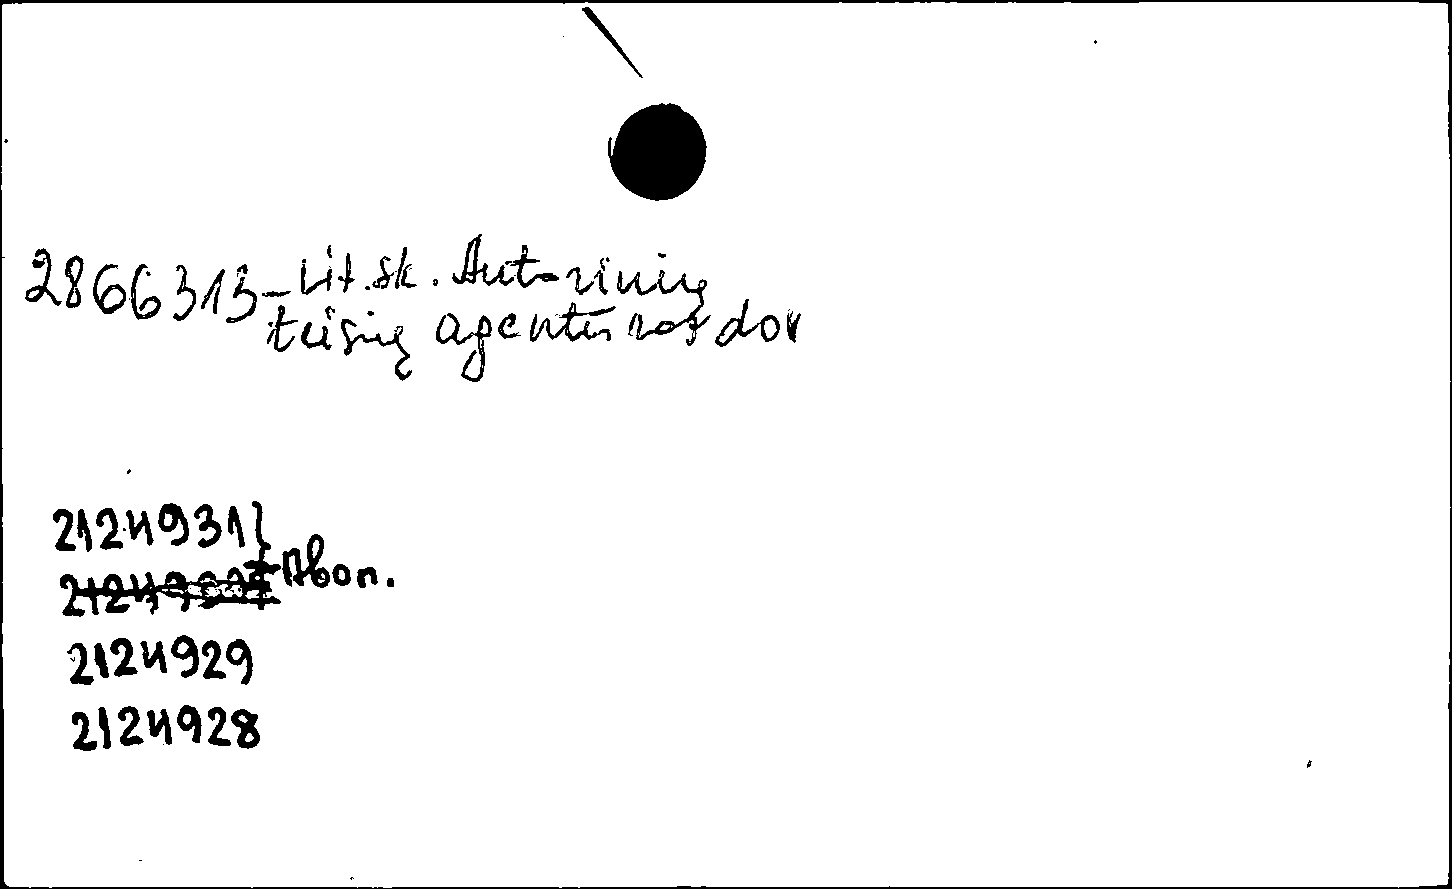 2866313-Lit.sk. Autorinių
teisių agentūros dov
2124931}
Abon.
2124929
2124928